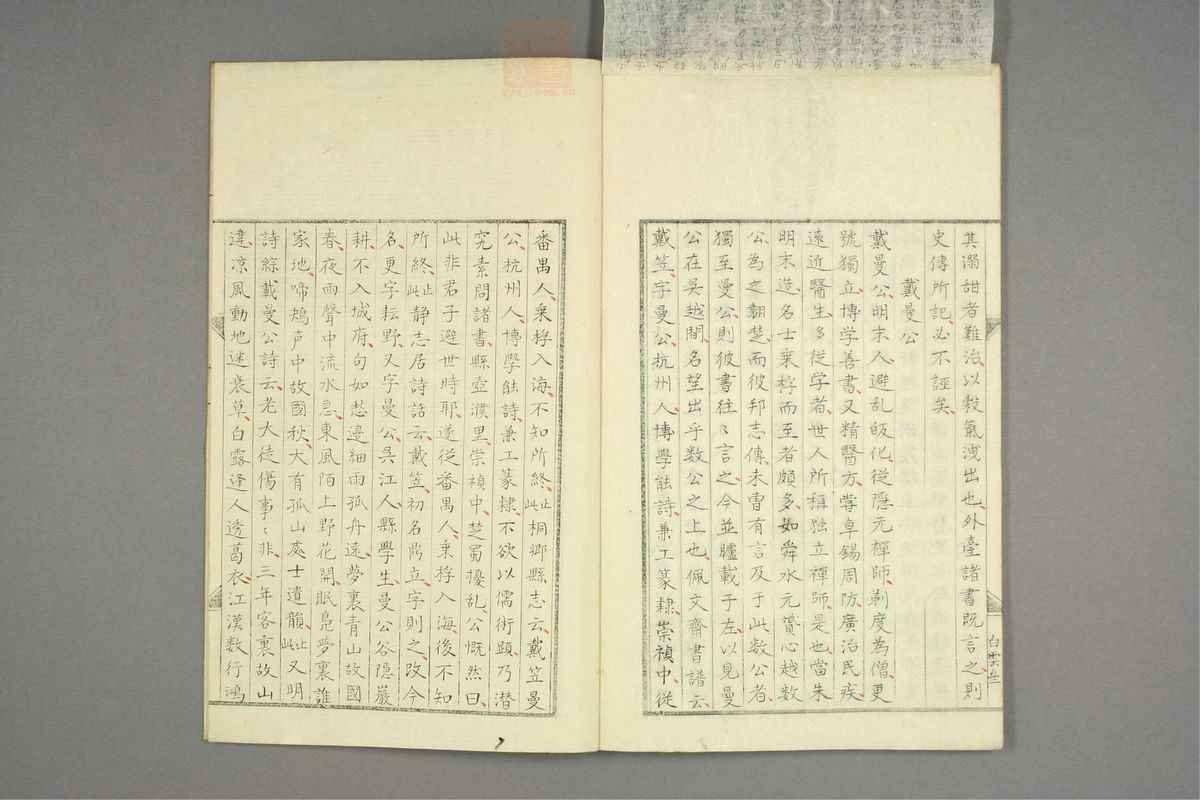 其溺甜者難治以穀氣洩出也外臺諸書既言之則
史傳所記必不誣矣
戴曼公
戴曼公明末人避乱皈化從隱元禪師剃度為僧更
號獨立博学善書又精醫方甞卓錫周防廣治民疾
遠近醫生多従学者世人所稱独立禪師是也當朱
明末造名士乗桴而至者頗多如舜水元贇心越数
公為之翹楚而彼邦志傳未曹有言及于此数公者
獨至曼公則彼書往〻言之今並臚載于左以見曼
公在吳越間名望出乎数公之上也佩文齋書譜云
戴笠字曼公杭州人博學能詩兼工篆隸崇禎中従
白雲
番禺人乗桴入海不知所終止此桐郷縣志云戴笠曼
公杭州人博學能詩兼工篆隸不欲以儒術顕乃潜
究素問諸書縣壺濮里崇禎中楚蜀擾乱公慨然曰
此非君子避世時耶遂従番禺人乗桴入海後不知
所終止此静志居詩話云戴笠初名鼎立字則之改今
名更字耘野又字曼公呉江人縣學生曼公谷隠巖
耕不入城府句如愁邉細雨孤舟遠夢裏青山故國
春夜雨聲中流水急東風陌上野花開眠凫夢裏誰
家地啼鴂声中故國秋大有孤山處士遺韻止此又明
詩綜戴曼公詩云老大徒傷事〻非三年客裏故山
違凉風動地迷衰草白露逢人透葛衣江漢数行鴻
zysj.com.cn